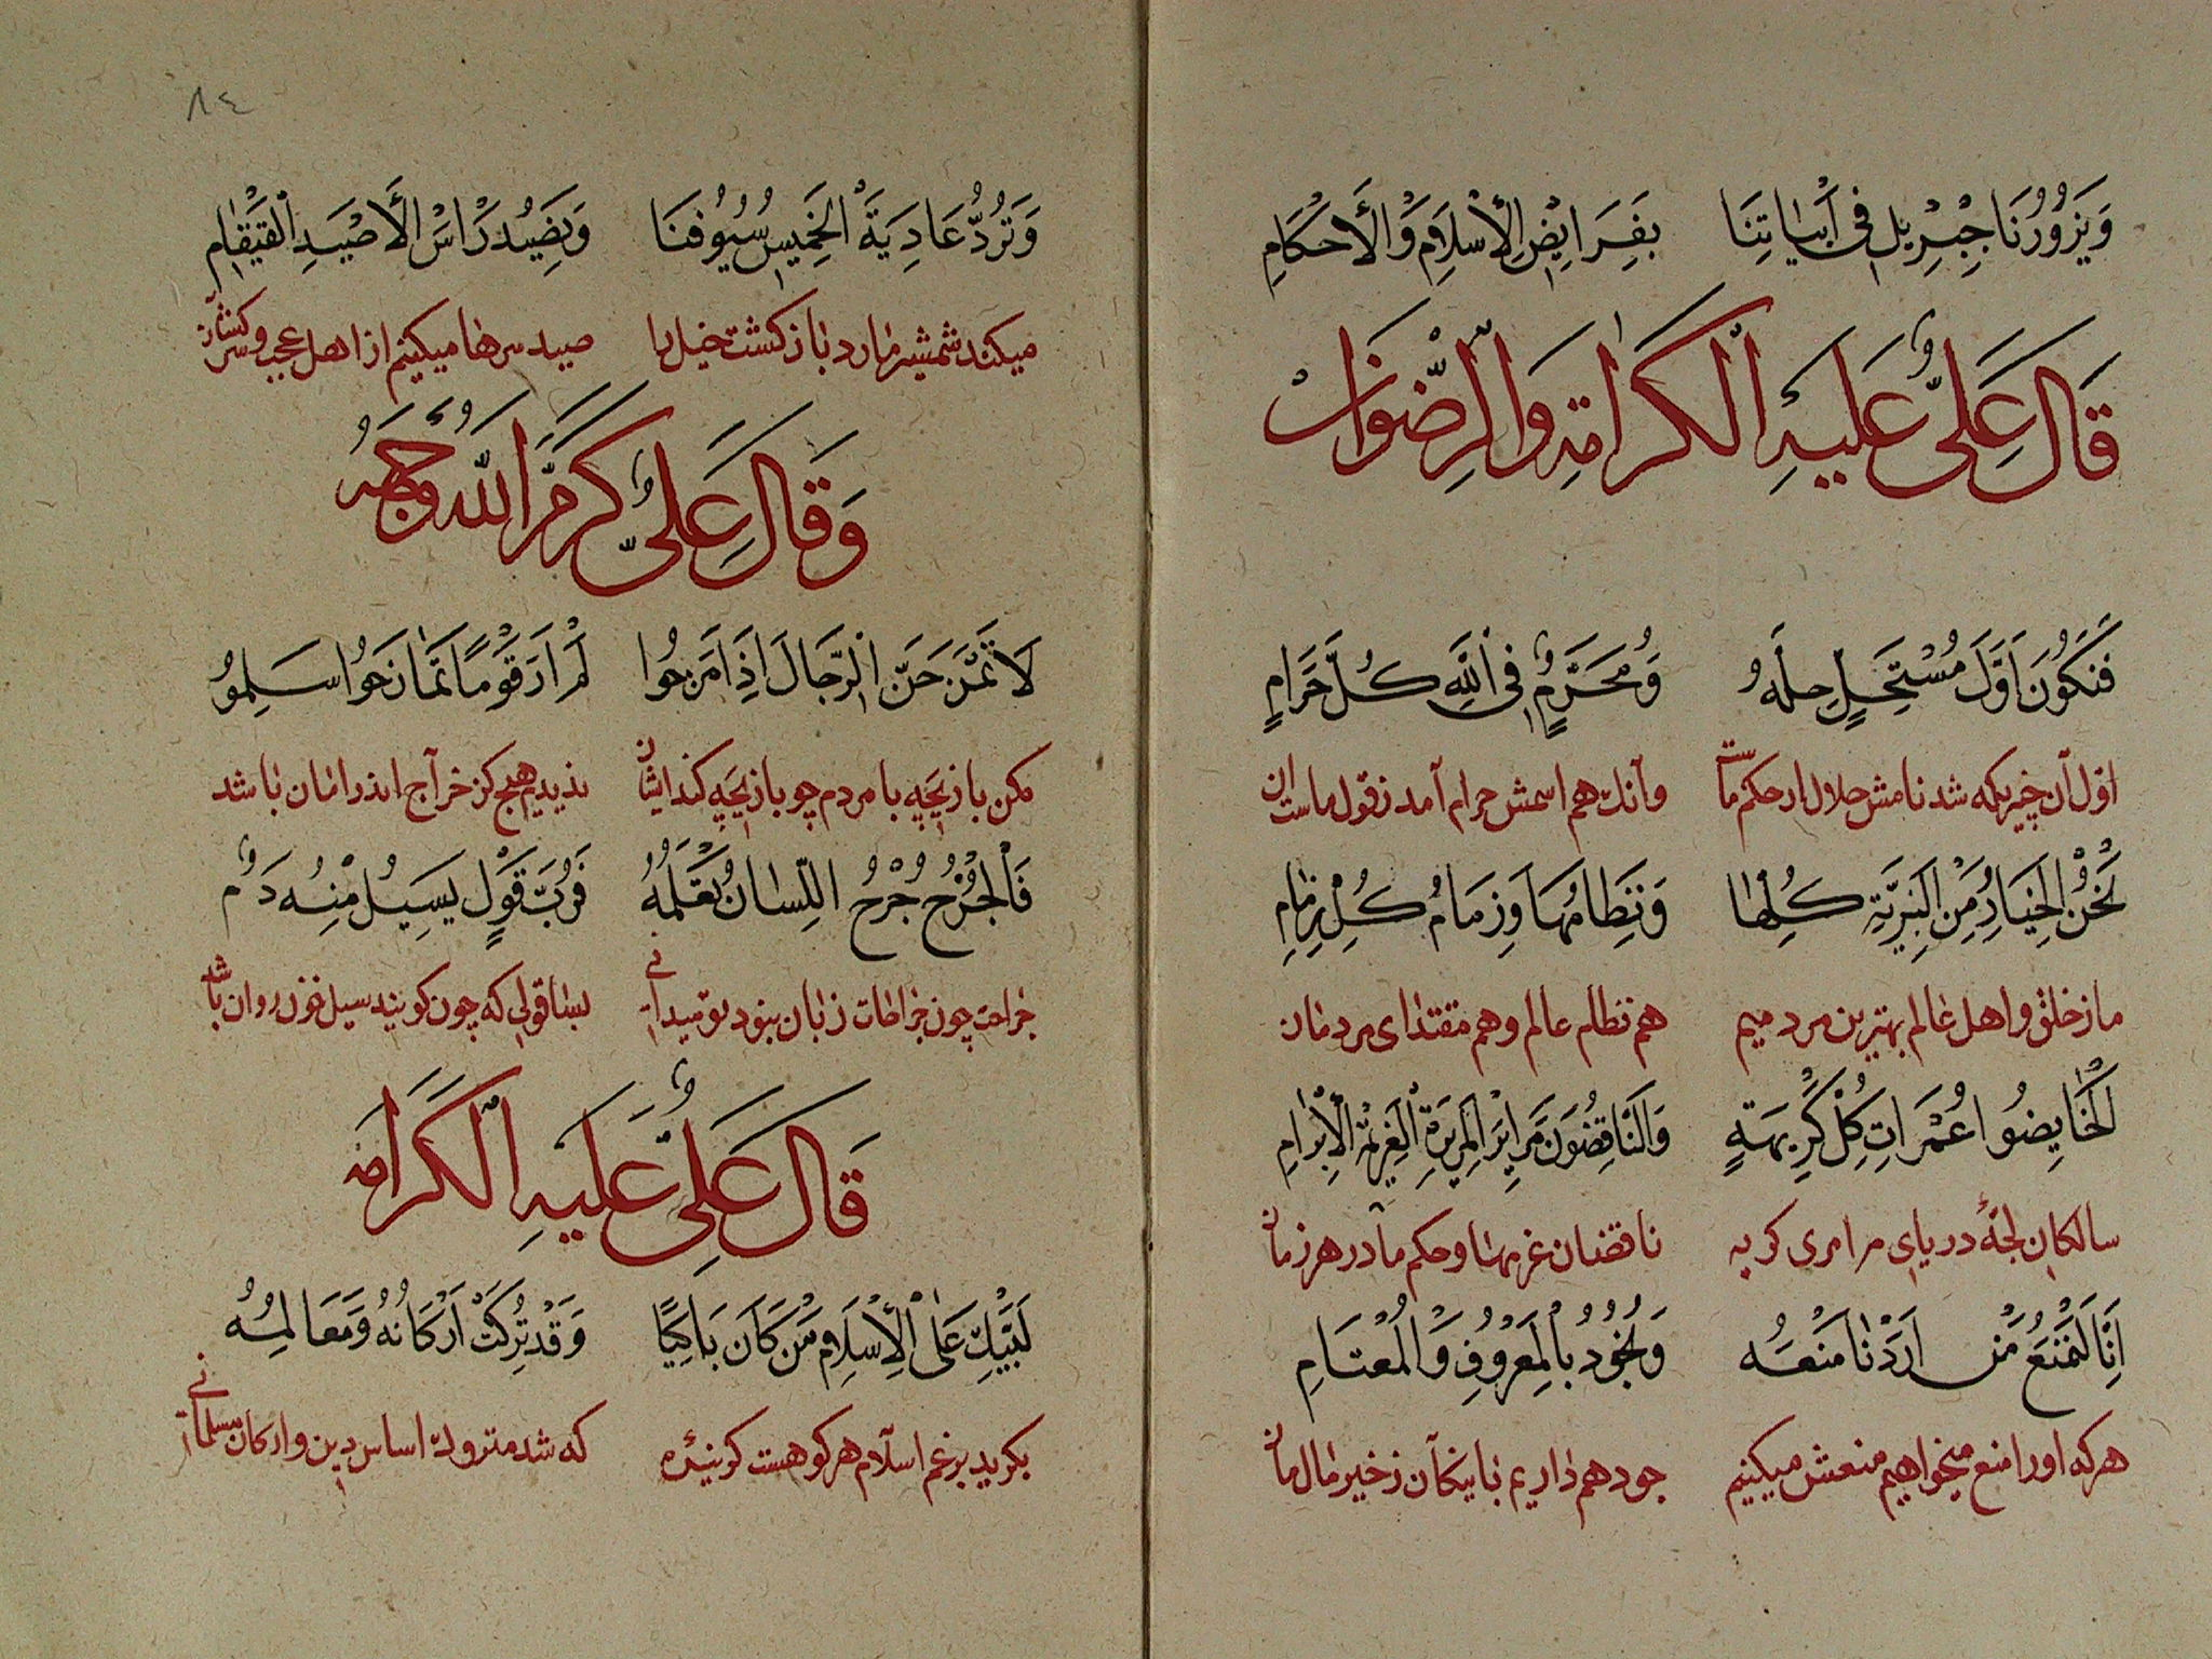 وَيَزُورُنَا جِبْرِيلُ فِي أَبْيَاتِنَا بِفَرَايِضِ الْإِسْلَامِ وَالْأَحْكَامِ
قَالَ عَلِيٌّ عَلَيْهِ الْكَرَامَةِ وَالرِّضْوَان
فَنَكُونُ اَوَّلَ مُسْتَحِلٍّ حِلَّهُ وَمُحَرِّمٌ فِي اللَّهِ كُلَّ حَرَامٍ
اول آن چیزیکه شد نامش حلال از حکم ماست وآنك هم اسمش حرام آمد ز قول ماست ان
نَحْنُ الْخِيَارُ مِنَ الْبَرِيَّةِ كُلِّهَا وَنِظَامُهَا وَزِمَامُ كُلِّ زِمَامِ
ما ز خلق و اهل عالم بهترین مردمیم هم نظام عالم وهم مقتدای مردمان
اَلْخَايِضُوا غُمَرَاتِ كُلِّ كَرِيهَةٍ وَالنَّاقِضُونَ مَرَايِرَ الْإِبْرَامِ
سالكان لجهٔ دریای مر امری کریه ناقضان عزمها و حکم ما در هر زمان
إِنَّا لَنَمْنَعُ مَنْ اَرَدْنَا مَنْعَهُ وَنَجُودُ بِالْمَعْرُوفِ وَالْمُعْتَامِ
هر که او را منع میخواهیم منعش میکنیم جود هم داریم با نیکان ز خیر مال مان
٨٤
وَتَرُدُّ عَادِيَةَ الْخَمِيسِ سُيُوفُنَا وَنَصِيدُ رَاسَ الْأَصْيَدِ الْقَمْقَامِ
میکند شمشیر ما رد باز کشت خیل را صید سرها میکنیم از اهل عجب و سرکشان
وَقَالَ عَلِيٌّ كَرَّمَ اللهُ وَجْهَهُ
لَا تَمْزَحَنَّ الرِّجَالَ اِذَا مَزَحُوا لَمْ اَرَ قَوْمًا تَمَازَحُوا سَلِمُوا
مکن بازیچه با مردم چو بازیچه کند ایشان ندیدیم هیچ کز
فَالْجُرْحُ جُرْحُ اللِّسَانِ نَعْلَمُهُ فَرُبَّ قَوْلٍ يَسِيلُ مِنْهُ دَمٌ
جراحت چون جراحات زبان نبود تو میدانی بسا قولی که چون کویند سیل خون روان باشد
قَالَ عَلِيٌّ عَلَيْهِ الْكَرَامَه
لَيَبْكِ عَلَى الْإِسْلَامِ مَنْ كَانَ بَاكِيًا وَقَدْ تُرِكَتْ اَرْكَانُهُ وَمَعَالِمُهُ
بکرید بر غم اسلام هر کو هست کرینده که شد متروك اساس دین و ارکان مسلمانی